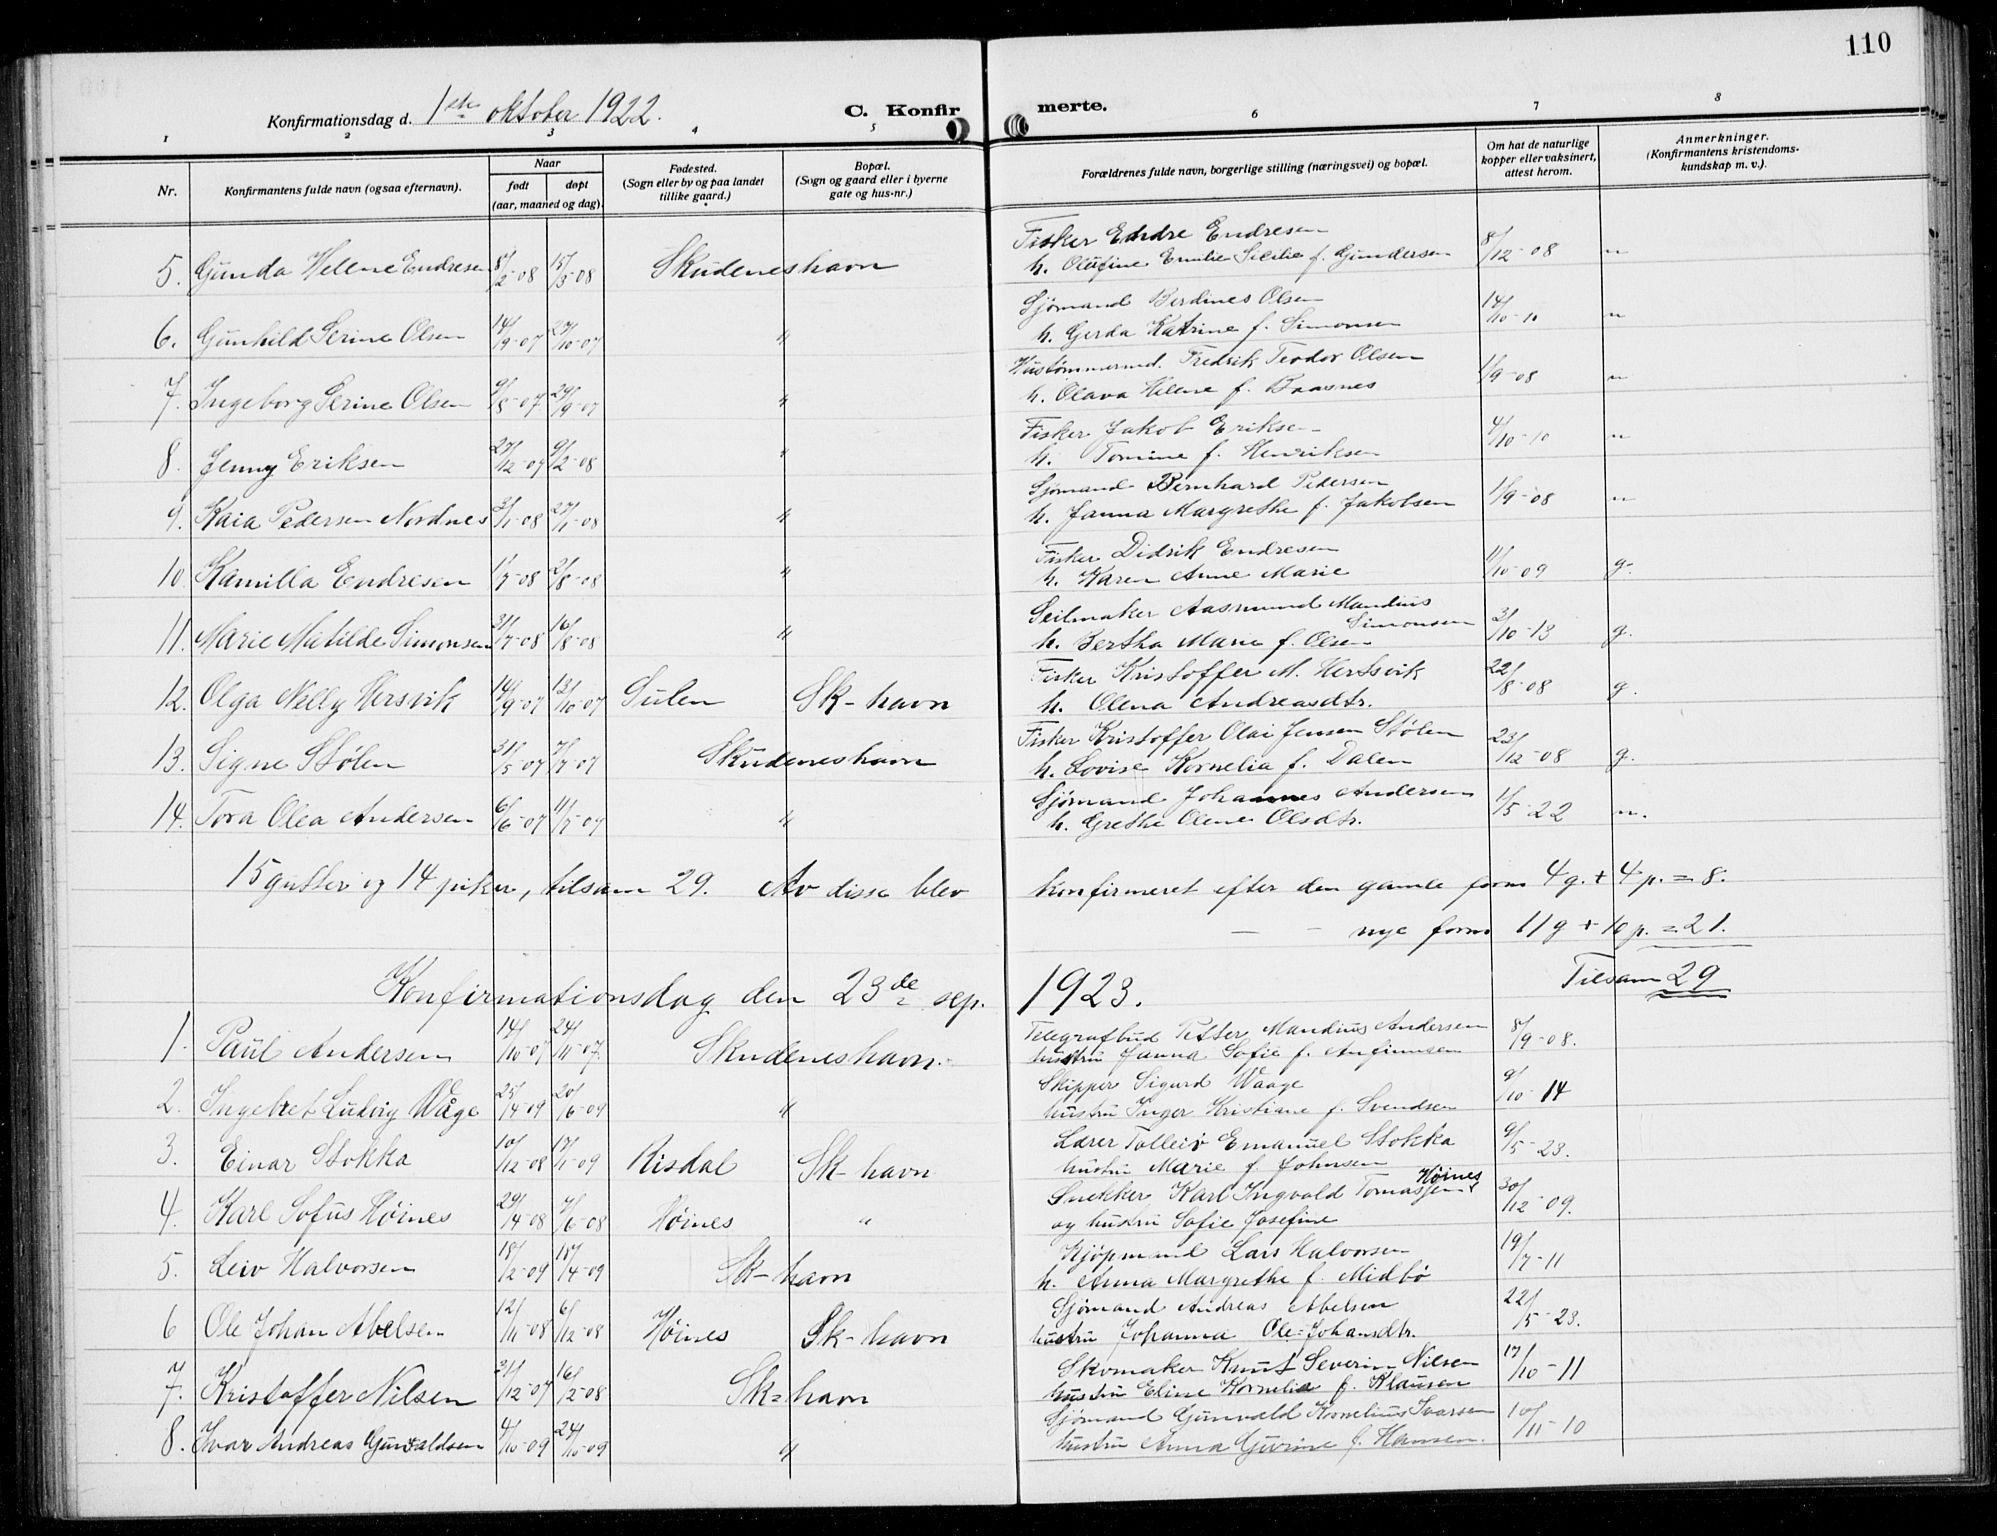 110
Konfirmationsdag d. 1ste oktober 1922.
C. Konfirmerte.
1 2 3 4 5 6 7 8
Nr.
Konfirmantens fulde navn (ogsaa efternavn).
Naar
født døpt
(aar, maaned og dag).
Fødested.
(Sogn eller by og paa landet
tillike gaard.)
Bopæl.
(Sogn og gaard eller i byerne
gate og hus-nr.)
Forældrenes fulde navn, borgerlige stilling (næringsvei) og bopæl.
Om hat de naturlige
kopper eller vaksinert,
attest herom.
Anmerkninger.
(Konfirmantens kristendoms-
kundskap m. v.).
5. Gunda Helene Endresen 8/2-08 15/3-08 Skudeneshavn Fisker Endre Endresen 8/12-08 n
h. Olufine Emilie Sicilie f. Gundersen
6. Gunhild Serine Olsen 14/9-07 27/10-07 " Sjømand Berdines Olsen 14/10-10 n
h. Gerda Katrine f. Simonsen
7. Ingeborg Serine Olsen 9/8-07 29/9-07 " Hustømmermd. Fredrik Teodor Olsen 1/9-08 n
h. Olava Helene f. Baasnes
8. Jenny Eriksen 27/12-07 9/2-08 " Fisker Jakob Eriksen 4/10-10 n
h. Tomine f. Henriksen
9. Kaia Pedersen Nordnes 3/1-08 27/1-08 " Sjømand Bernhard Pedersen 1/9-08 n
h. Janna Margrethe f. Jakobsen
10. Kamilla Endresen 1/7-08 2/8-08 " Fisker Didrik Endresen 11/10-09 g.
h. Karen Anne Marie
11. Marie Matilde Simonsen 31/7-08 16/8-08 " Seilmaker Aasmund Mandius Simonsen 3/10-13 g.
h. Bertha Marie f. Olsen
12. Olga Nelly Hersvik 14/9-07 13/10-07 Sulen Sk-havn Fisker Kristoffer M. Hertsvik 22/8-08 g.
h. Olena Andreasdtr.
13. Signe Stølen 31/5-07 7/7-07 Skudeneshavn Fisker Kristoffer Olai Jensen Stølen 23/12-08 g.
h. Lovise Kornelia f. Dalen
14. Tora Olea Andersen 6/6-07 11/7-07 " Sjømand Johannes Andersen 1/5-22 n.
h. Grethe Olene Olsdtr.
15 gutter og 14 piker, tilsam 29. Av disse blev konfirmeret efter den gamle form 4 g. + 4 p. = 8.
— - nye form 11 g + 10 p. = 21.
Tilsam 29
Konfirmationsdag den 23de sep. 1923.
1. Paul Andersen 14/10-07 24/11-07. Skudeneshavn. Telegrafbud Petter Mandius Andersen 8/9-08.
hustru Janna Sofie f. Anfinnsen
2. Ingebret Ludvig Våge 25/4-09 20/6-09 " Skipper Sigurd Waage 9/10-14
hustru Inger Kristiane f. Svendsen
3. Einar Stokka 10/12-08 17/1-09 Risdal Sk-havn Lærer Tolleiv Emanuel Stokka 9/5-23.
hustru Marie f. Johnsen
4. Karl Sofus Høines 29/4-08 7/6-08 Høines " Snekker Karl Ingvald Tomassen Høines 30/12-09.
og hustru Sofie Josefine
5. Leiv Halvorsen 18/2-09 18/4-09 Sk-havn Kjøpmand Lars Halvorsen 19/7-11
h. Anna Margrethe f. Midbø
6 Ole Johan Abelsen 12/11-08 6/12-08 Høines Sk-havn Sjømand Andreas Abelsen 22/5-23.
hustru Johanna Ole-Johansdtr.
7. Kristoffer Nilsen 31/12-07 16/2-08 Sk-havn Skomaker Knut Severin Nilsen 17/10-11
hustru Eline Kornelia f. Klausen
8. Ivar Andreas Gunvaldsen 4/10-09 24/10-09 " Sjømand Gunvald Kornelius Ivarsen 10/11-10
hustru Anna Gurine f. Hansen.